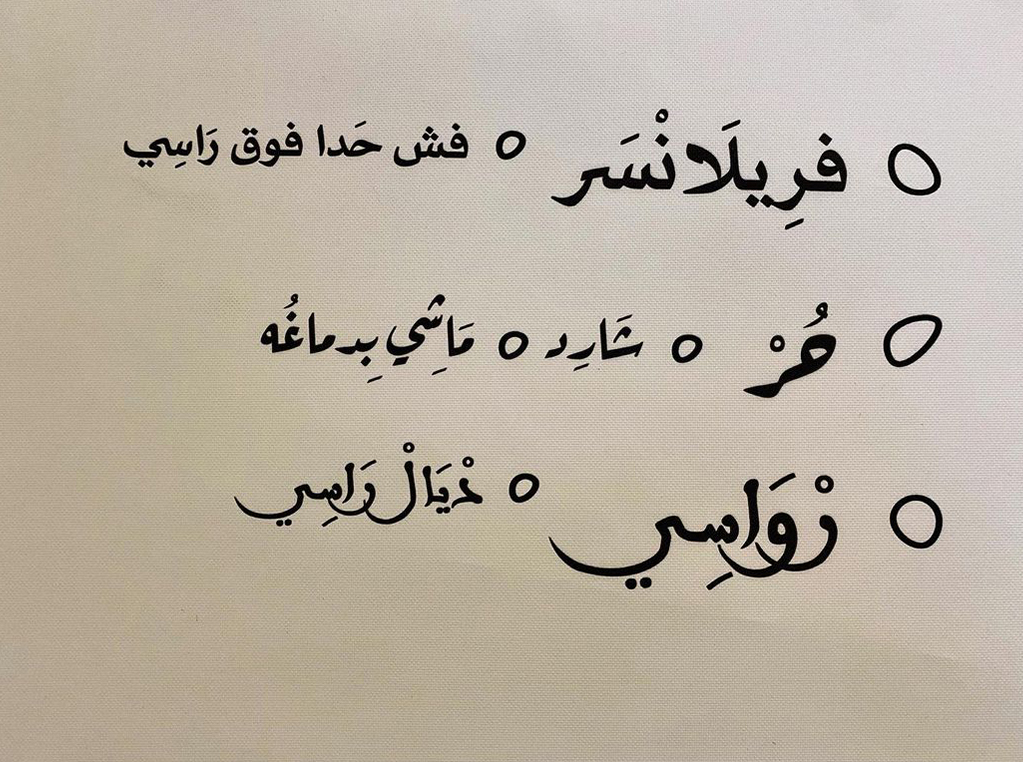 ○ فرِيلَانْسَر ○ فش حَدا فوق رَاسِي
○ حُرْ ○ شَارِد ○ مَاشِي بِدماغُه
○ رْوَاسِي ○ دْيَالْ رَاسِي